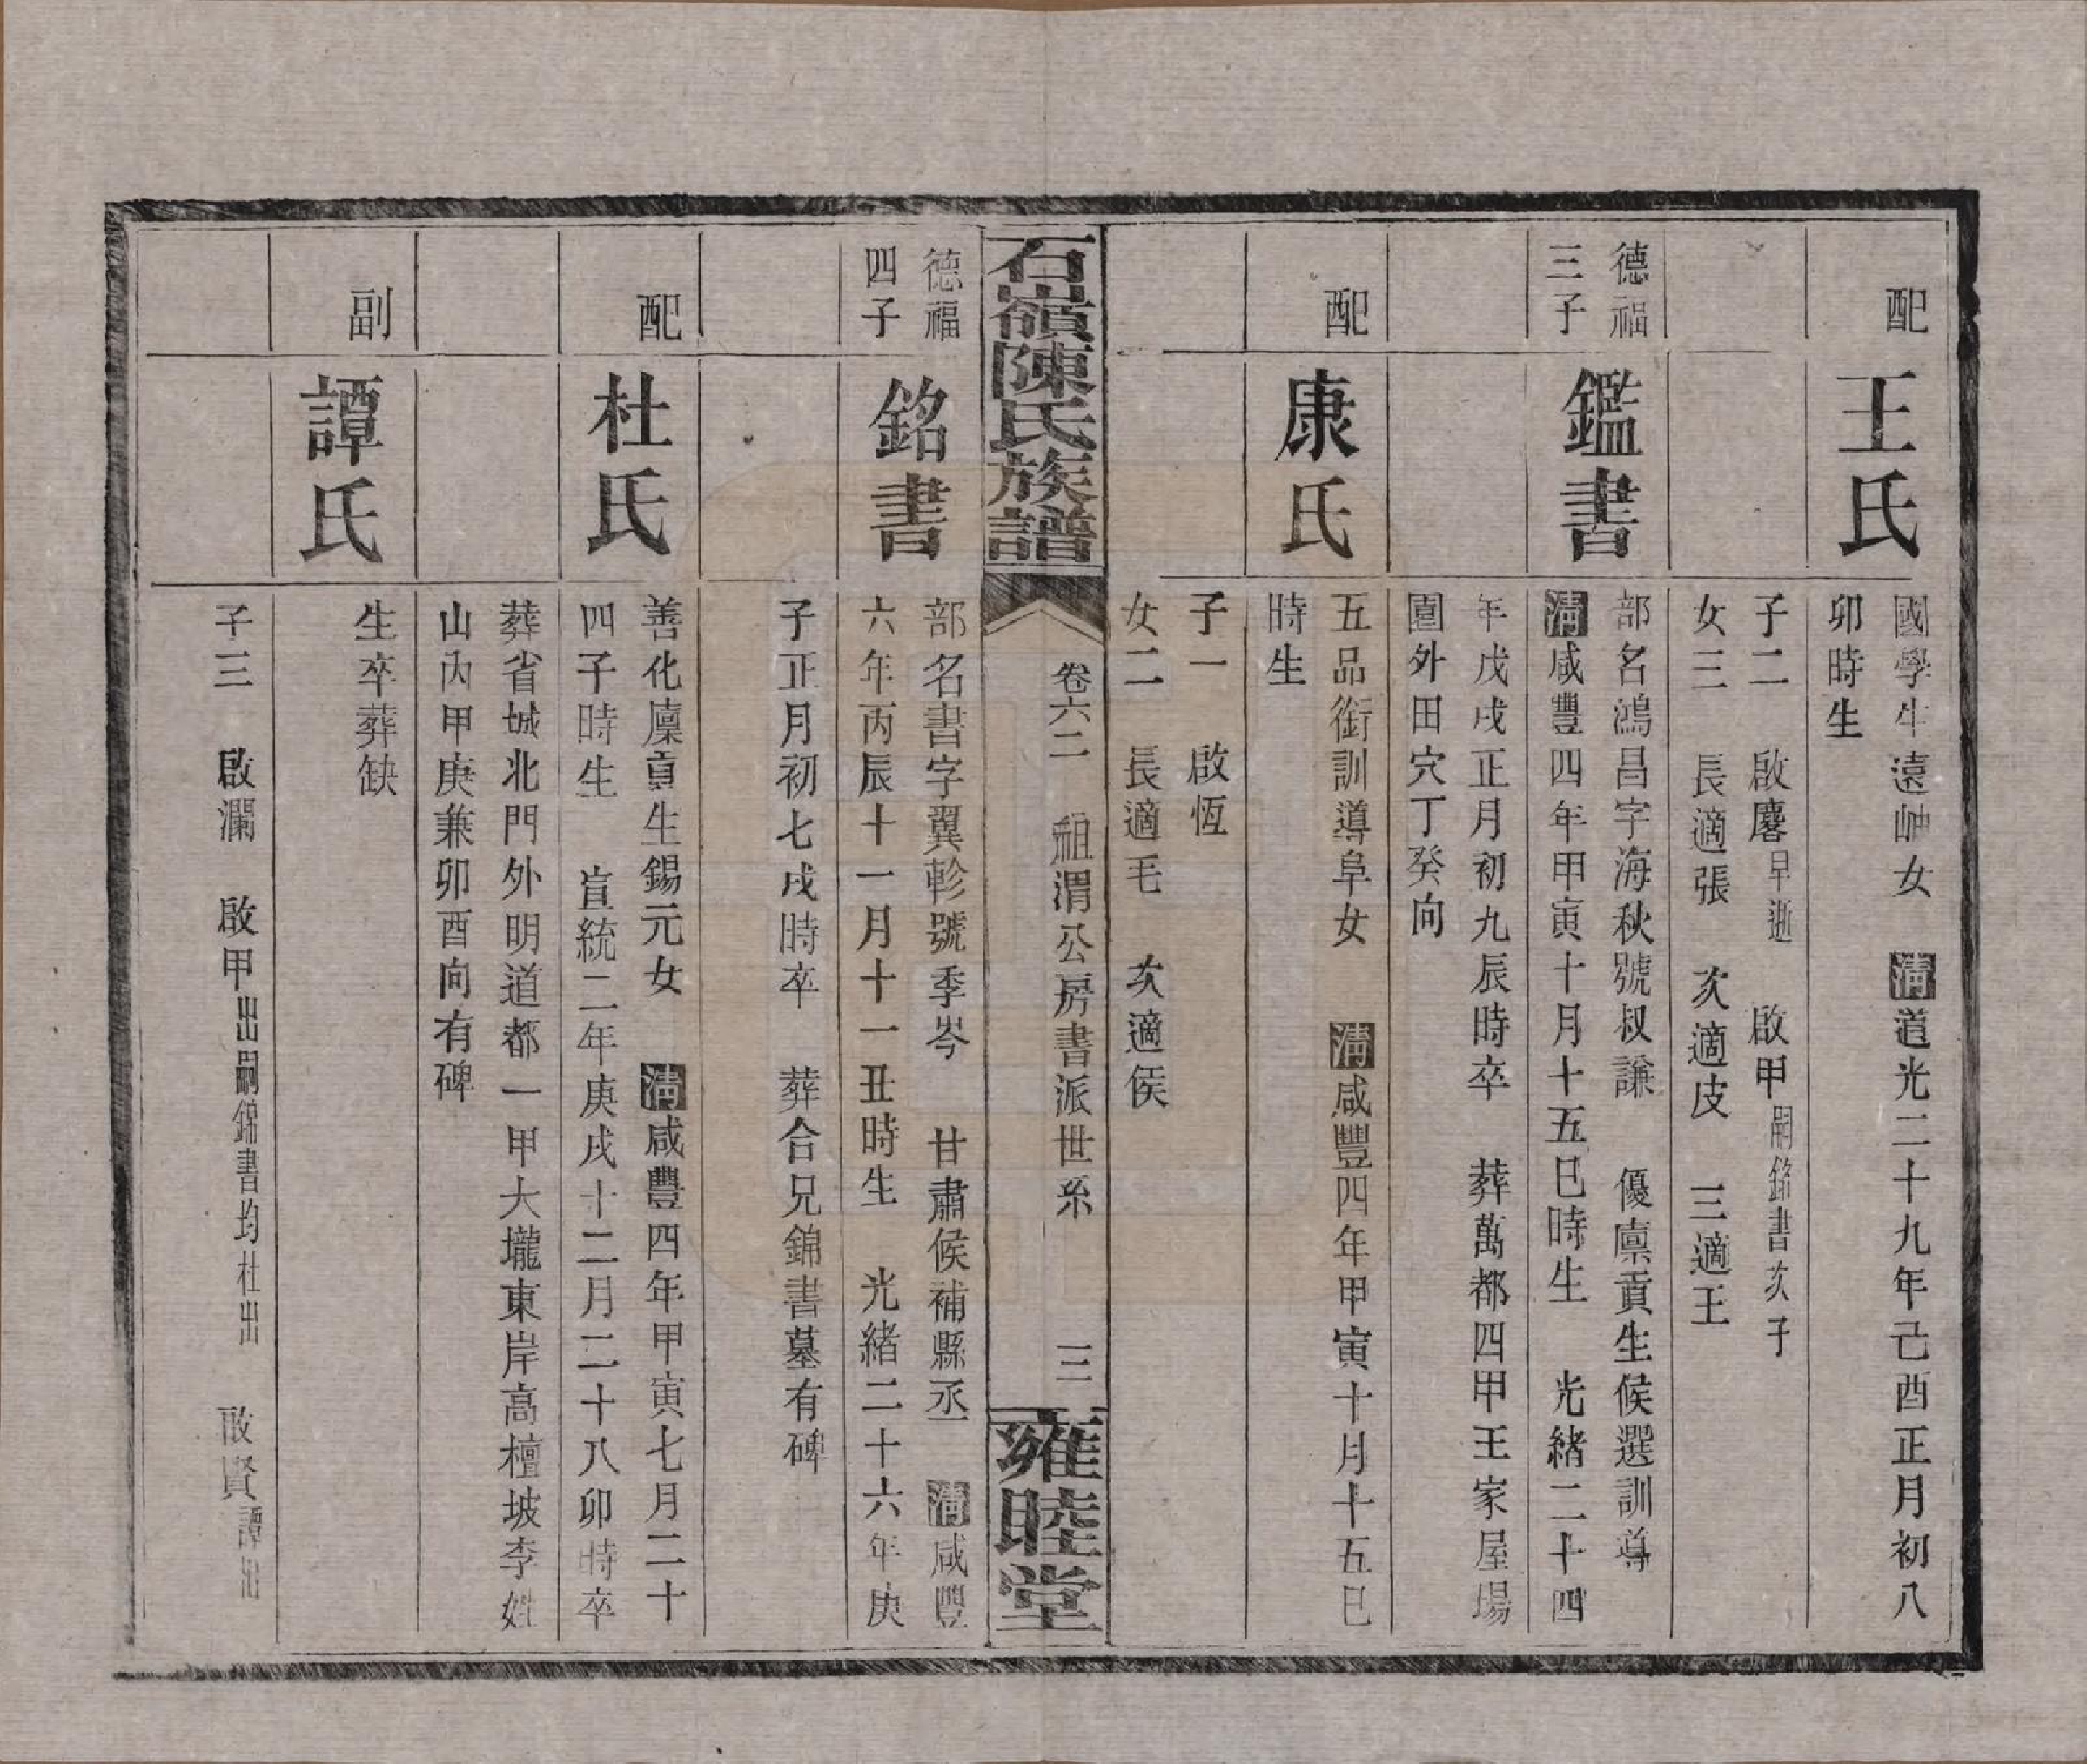 配
王氏
國學生遠岫女 清道光二十九年己酉正月初八
卯時生
子二 啟麐早逝 啟甲嗣銘書次子
女三 長適張 次適皮 三適王
德福
三子
鑑書
部名鴻昌字海秋號叔謙 優廩貢生候選訓導
清咸豐四年甲寅十月十五巳時生 光緒二十四
年戊戌正月初九辰時卒 葬萬都四甲王家屋場
園外田穴丁癸向
配
康氏
五品銜訓導阜女 清咸豐四年甲寅十月十五巳
時生
子一 啟恆
女二 長適毛 次適侯
石嶺陳氏族譜
卷六二 祖渭公房書派世系 三
雍睦堂
德福
四子
銘書
部名書字翼軫號季岑 甘肅候補縣丞 清咸豐
六年丙辰十一月十一丑時生 光緒二十六年庚
子正月初七戌時卒 葬合兄錦書墓有碑
配
杜氏
善化廩貢生錫元女 清咸豐四年甲寅七月二十
四子時生 宣統二年庚戌十二月二十八卯時卒
葬省城北門外明道都一甲大壠東岸高檀坡李姓
山內甲庚兼卯酉向有碑
副
譚氏
生卒葬缺
子三 啟瀾 啟甲出嗣錦書均杜出 啟賢譚出